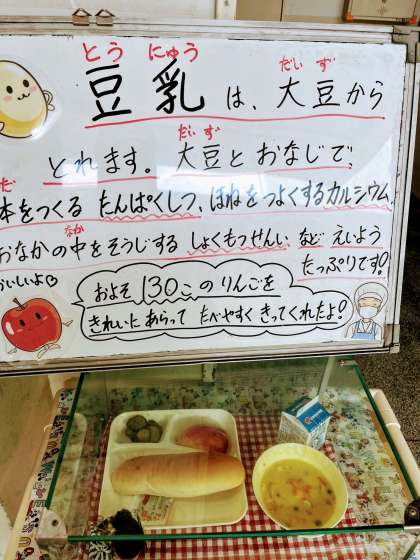 とう にゅう
豆乳は、大豆から
だい ず
とれます。大豆とおなじで、
だい ず
本をつくる たんぱくしつ、ほねをつよくするカルシウム、
だ
おなかの中をそうじする しょくもつせんい など えいよう
なか
たっぷりです!
おいしいよ
およそ130このりんごを
きれいにあらって たべやすく きってくれたよ!